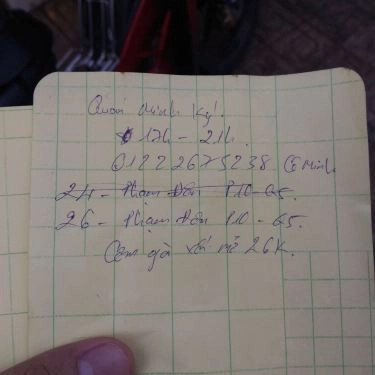 Quán Minh Ký.
17h - 21h.
01222675238 Cô Minh.
24 - Phạm Đôn P.10 - Q5.
26 - Phạm Đôn P.10 - Q5.
Cơm gà xối mỡ 26K.